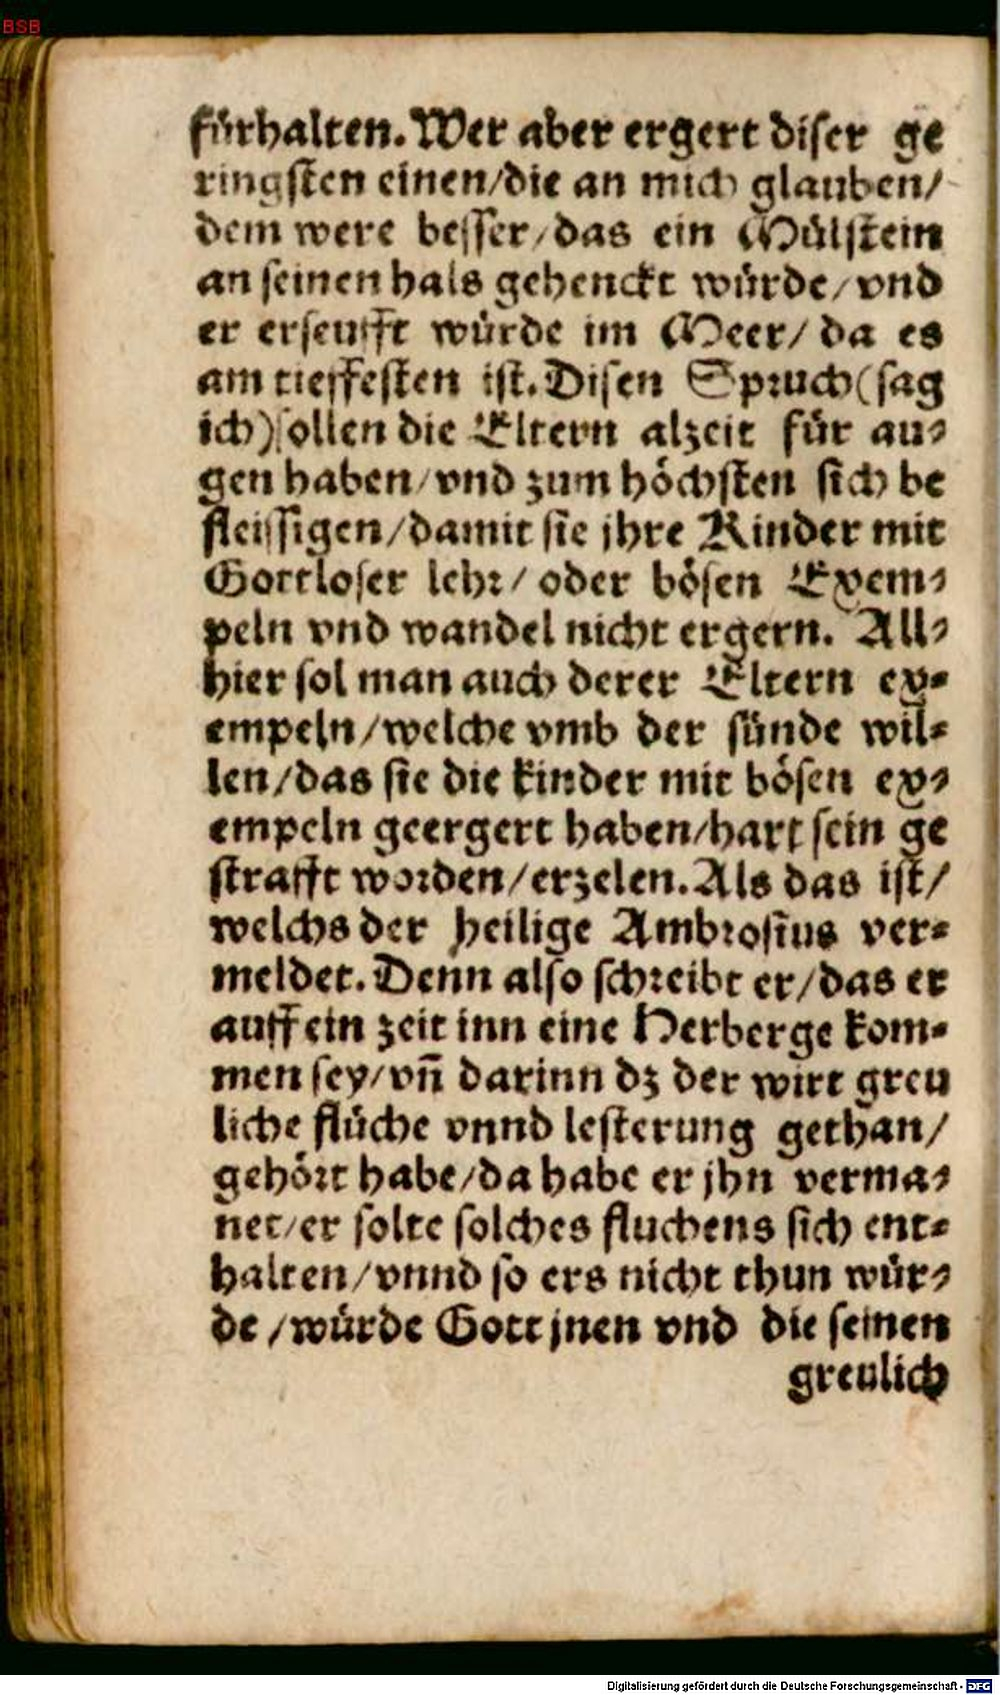 BSB
fürhalten. Wer aber ergert diser ge
ringsten einen/die an mich glauben/
dem were besser/das ein Mülstein
an seinen hals gehenckt würde/vnd
er erseufft würde im Meer/ da es
am tieffesten ist. Disen Spruch(sag
ich)sollen die Eltern alzeit für au-
gen haben/vnd zum höchsten sich be
fleissigen/damit sie jhre Kinder mit
Gottloser lehr/ oder bösen Exem-
peln vnd wandel nicht ergern. All-
hier sol man auch derer Eltern ex-
empeln/welche vmb der sünde wil-
len/das sie die kinder mit bösen ex-
empeln geergert haben/hart sein ge
strafft worden/erzelen. Als das ist/
welchs der heilige Ambrosius ver-
meldet. Denn also schreibt er/das er
auff ein zeit inn eine Herberge kom-
men sey/vñ darinn dz der wirt greu
liche flüche vnnd lesterung gethan/
gehört habe/da habe er jhn verma-
net/er solte solches fluchens sich ent-
halten/vnnd so ers nicht thun wür-
de /würde Gott jnen vnd die seinen
greulich
Digitalisierung gefördert durch die Deutsche Forschungsgemeinschaft - DFG